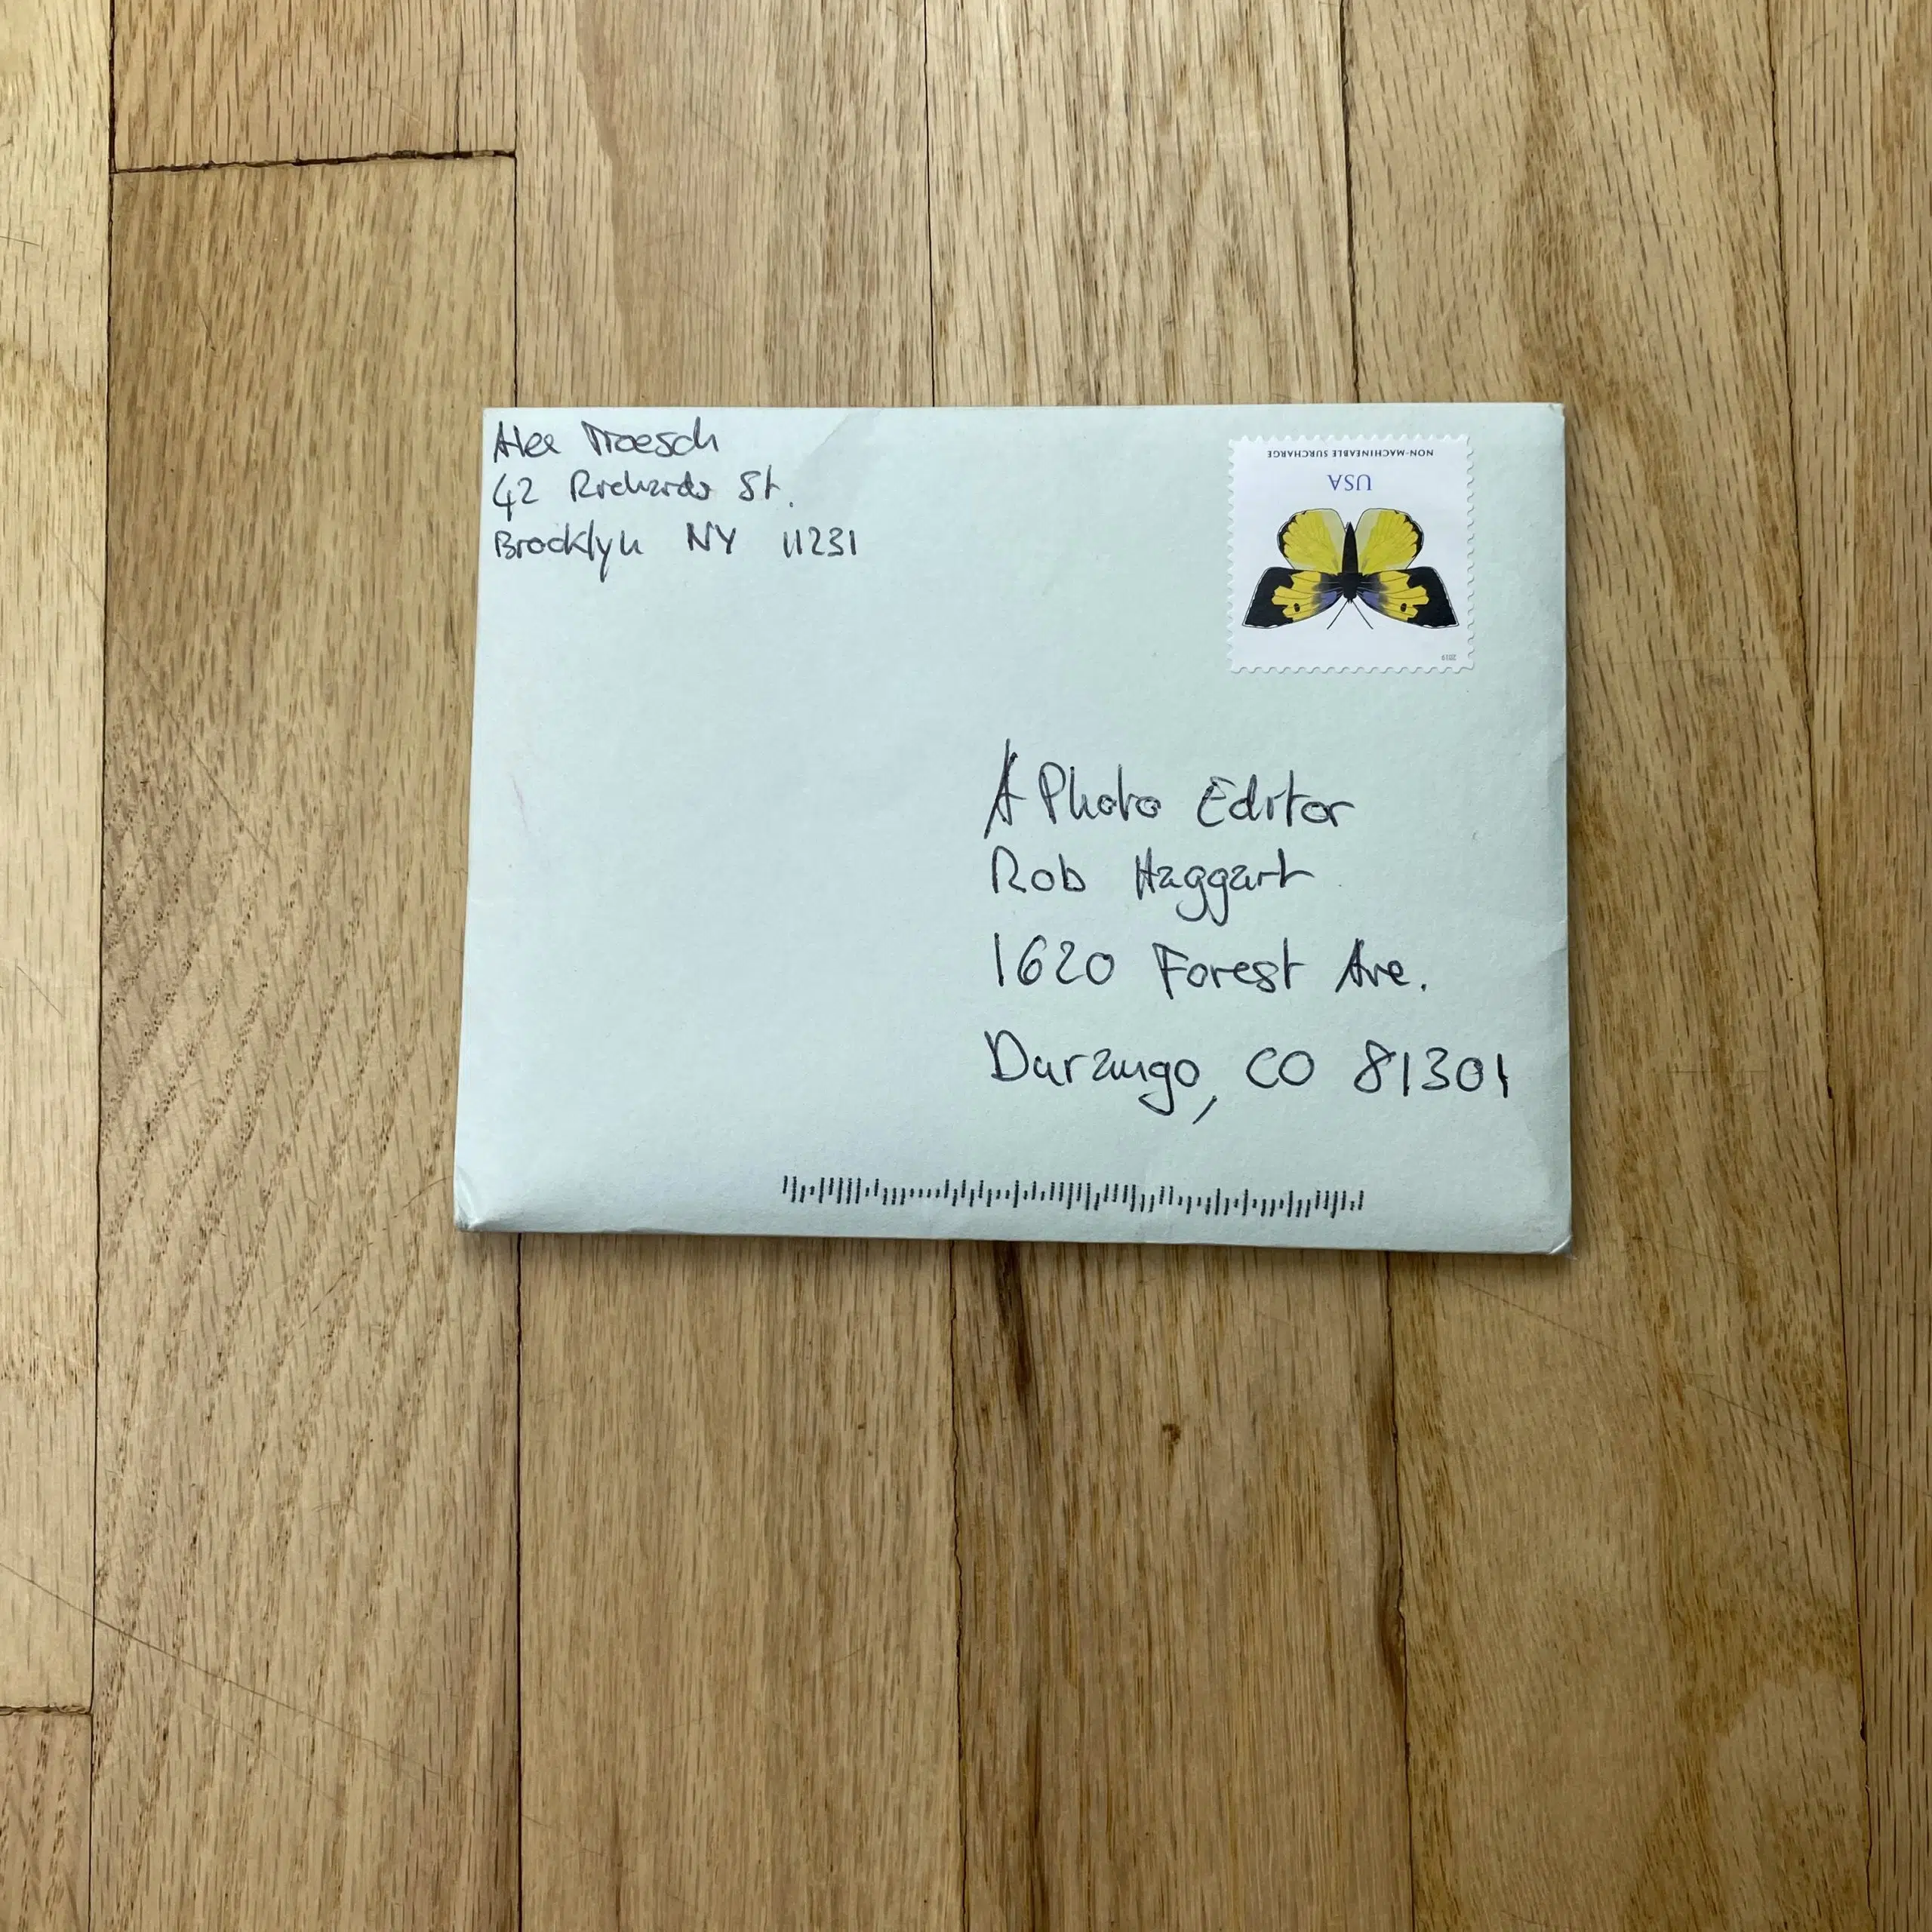 Alex Troesch
42 Richards St.
Brooklyn NY 11231
NON-MACHINEABLE SURCHARGE
USA
2019
A Photo Editor
Rob Haggart
1620 Forest Ave.
Durango, CO 81301